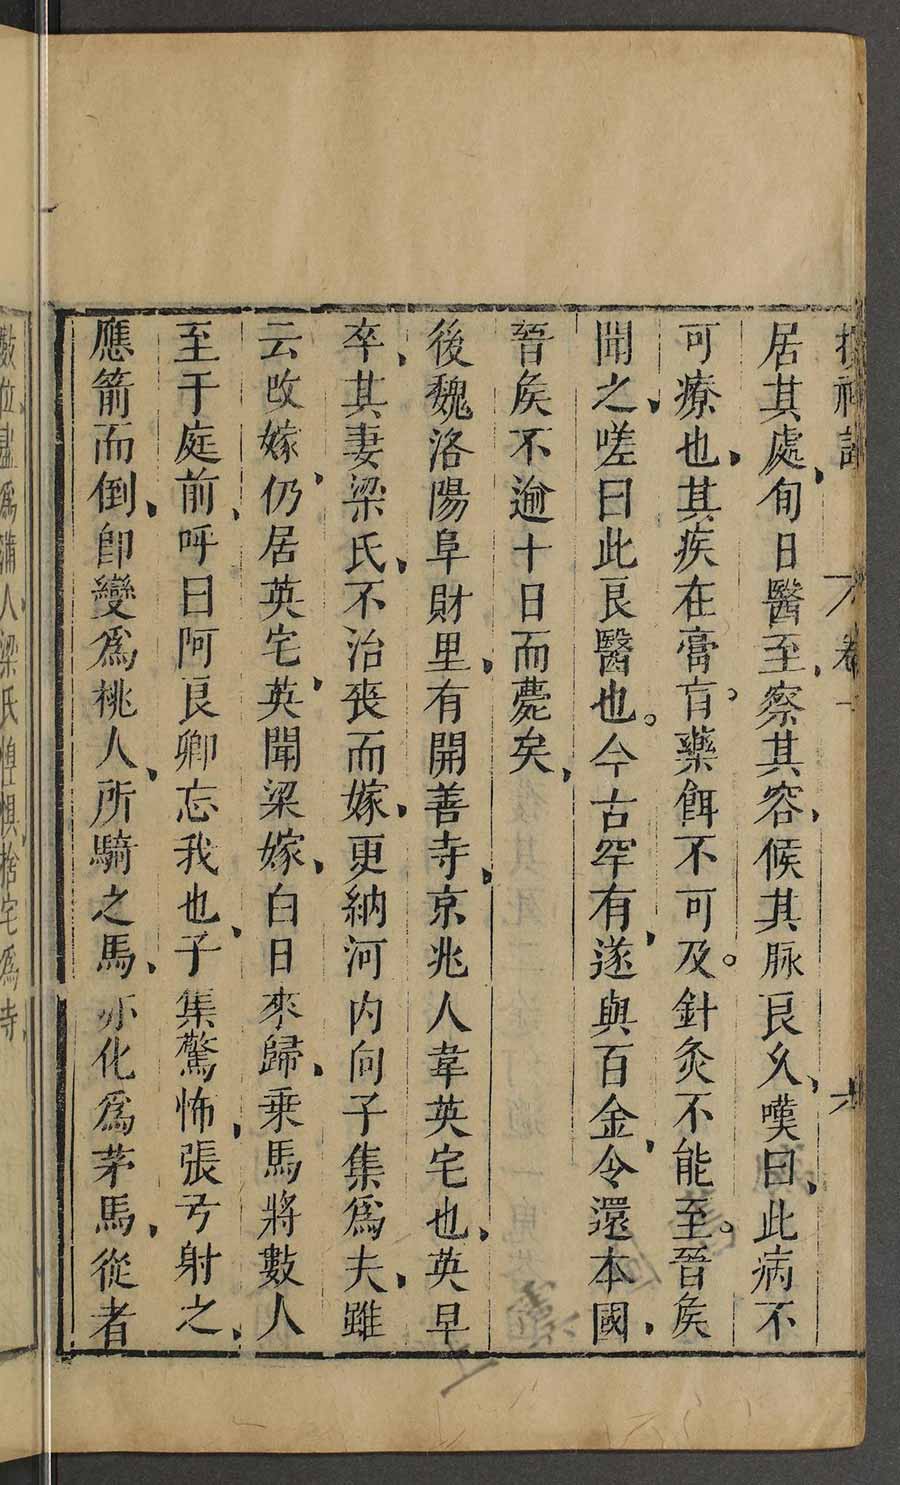 搜神記 卷一 六
居其處旬日醫至察其容候其脉良久嘆曰此病不
可療也其疾在膏肓藥餌不可及針灸不能至晉矦
聞之嗟曰此良醫也今古罕有遂與百金令還本國
晉矦不逾十日而薨矣
後魏洛陽阜財里有開善寺京兆人韋英宅也英早
卒其妻梁氏不治喪而嫁更納河内向子集爲夫雖
云改嫁仍居英宅英聞梁嫁白日來歸乗馬將數人
至于庭前呼曰阿良卿忘我也子集驚怖張弓射之
應箭而倒卽變爲桃人所騎之馬亦化爲茅馬從者
數位盡爲蒲人梁氏惶惧捨宅爲寺